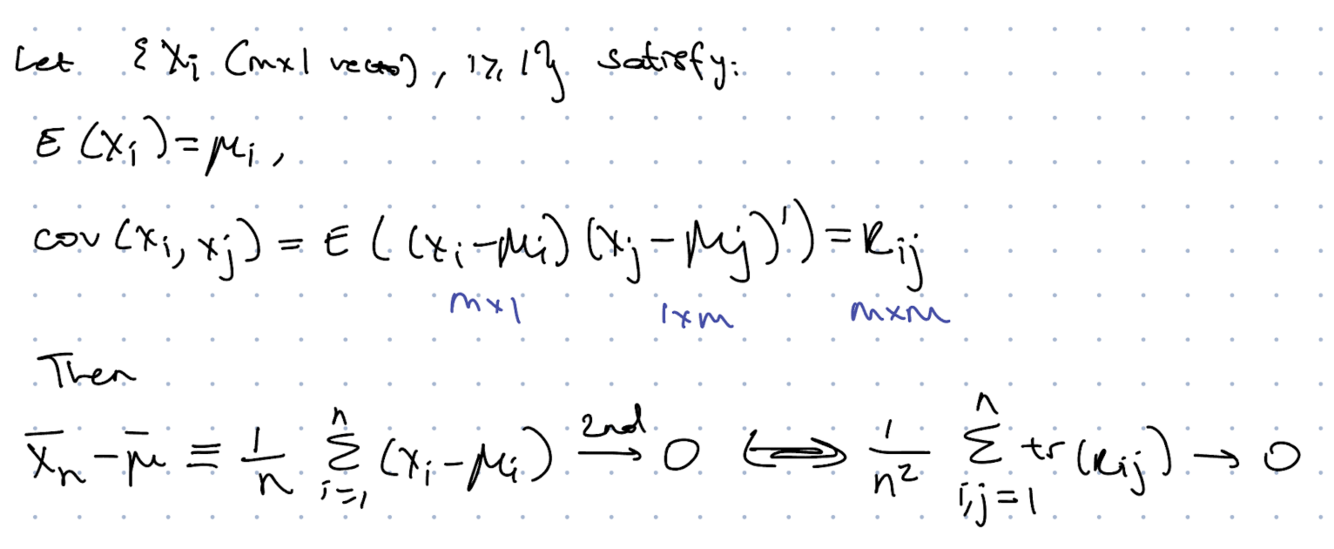 Let {X_i (m×1 vector), i≥1} satisfy:
E(X_i) = μ_i,
cov(X_i, X_j) = E((X_i-μ_i)(X_j-μ_j)') = R_ij
m×1 1×m m×m
Then
X̄_n - μ̄ ≡ 1/n Σ_{i=1}^n (X_i-μ_i) →^{2nd} 0 ⟺ 1/n² Σ_{i,j=1}^n tr(R_ij) → 0